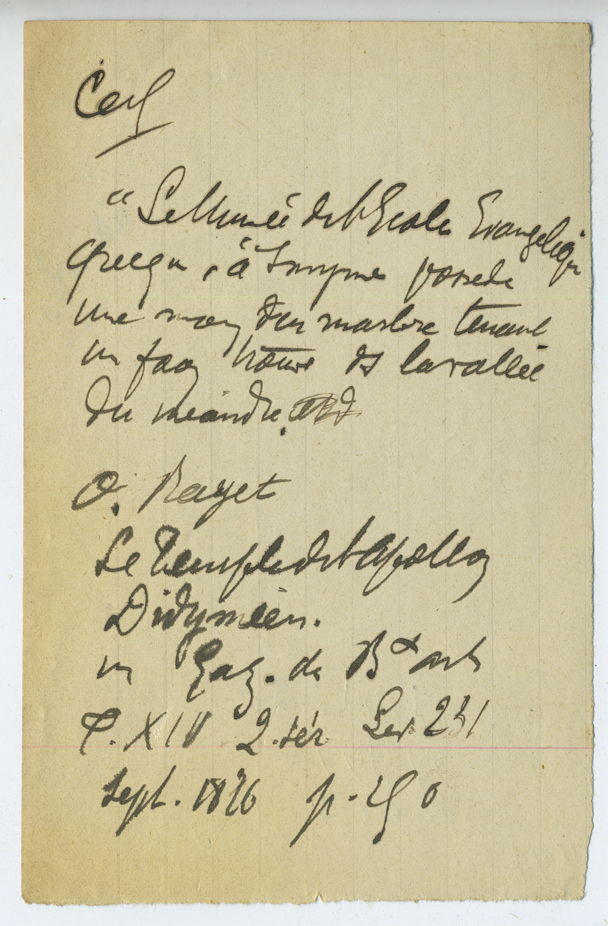 Cerf
"Le Musée de l'Ecole Evangelique
Grecque, à Smyrne possede
une main du marbre tenant
un faon trouvé ds la vallée
du méandre.
O. Rayet
Le Temple de l'Apollon
Didyméen.
in Gaz. des Bx arts
T. XIV 2. sér Liv. 231
Sept. 1876 p.